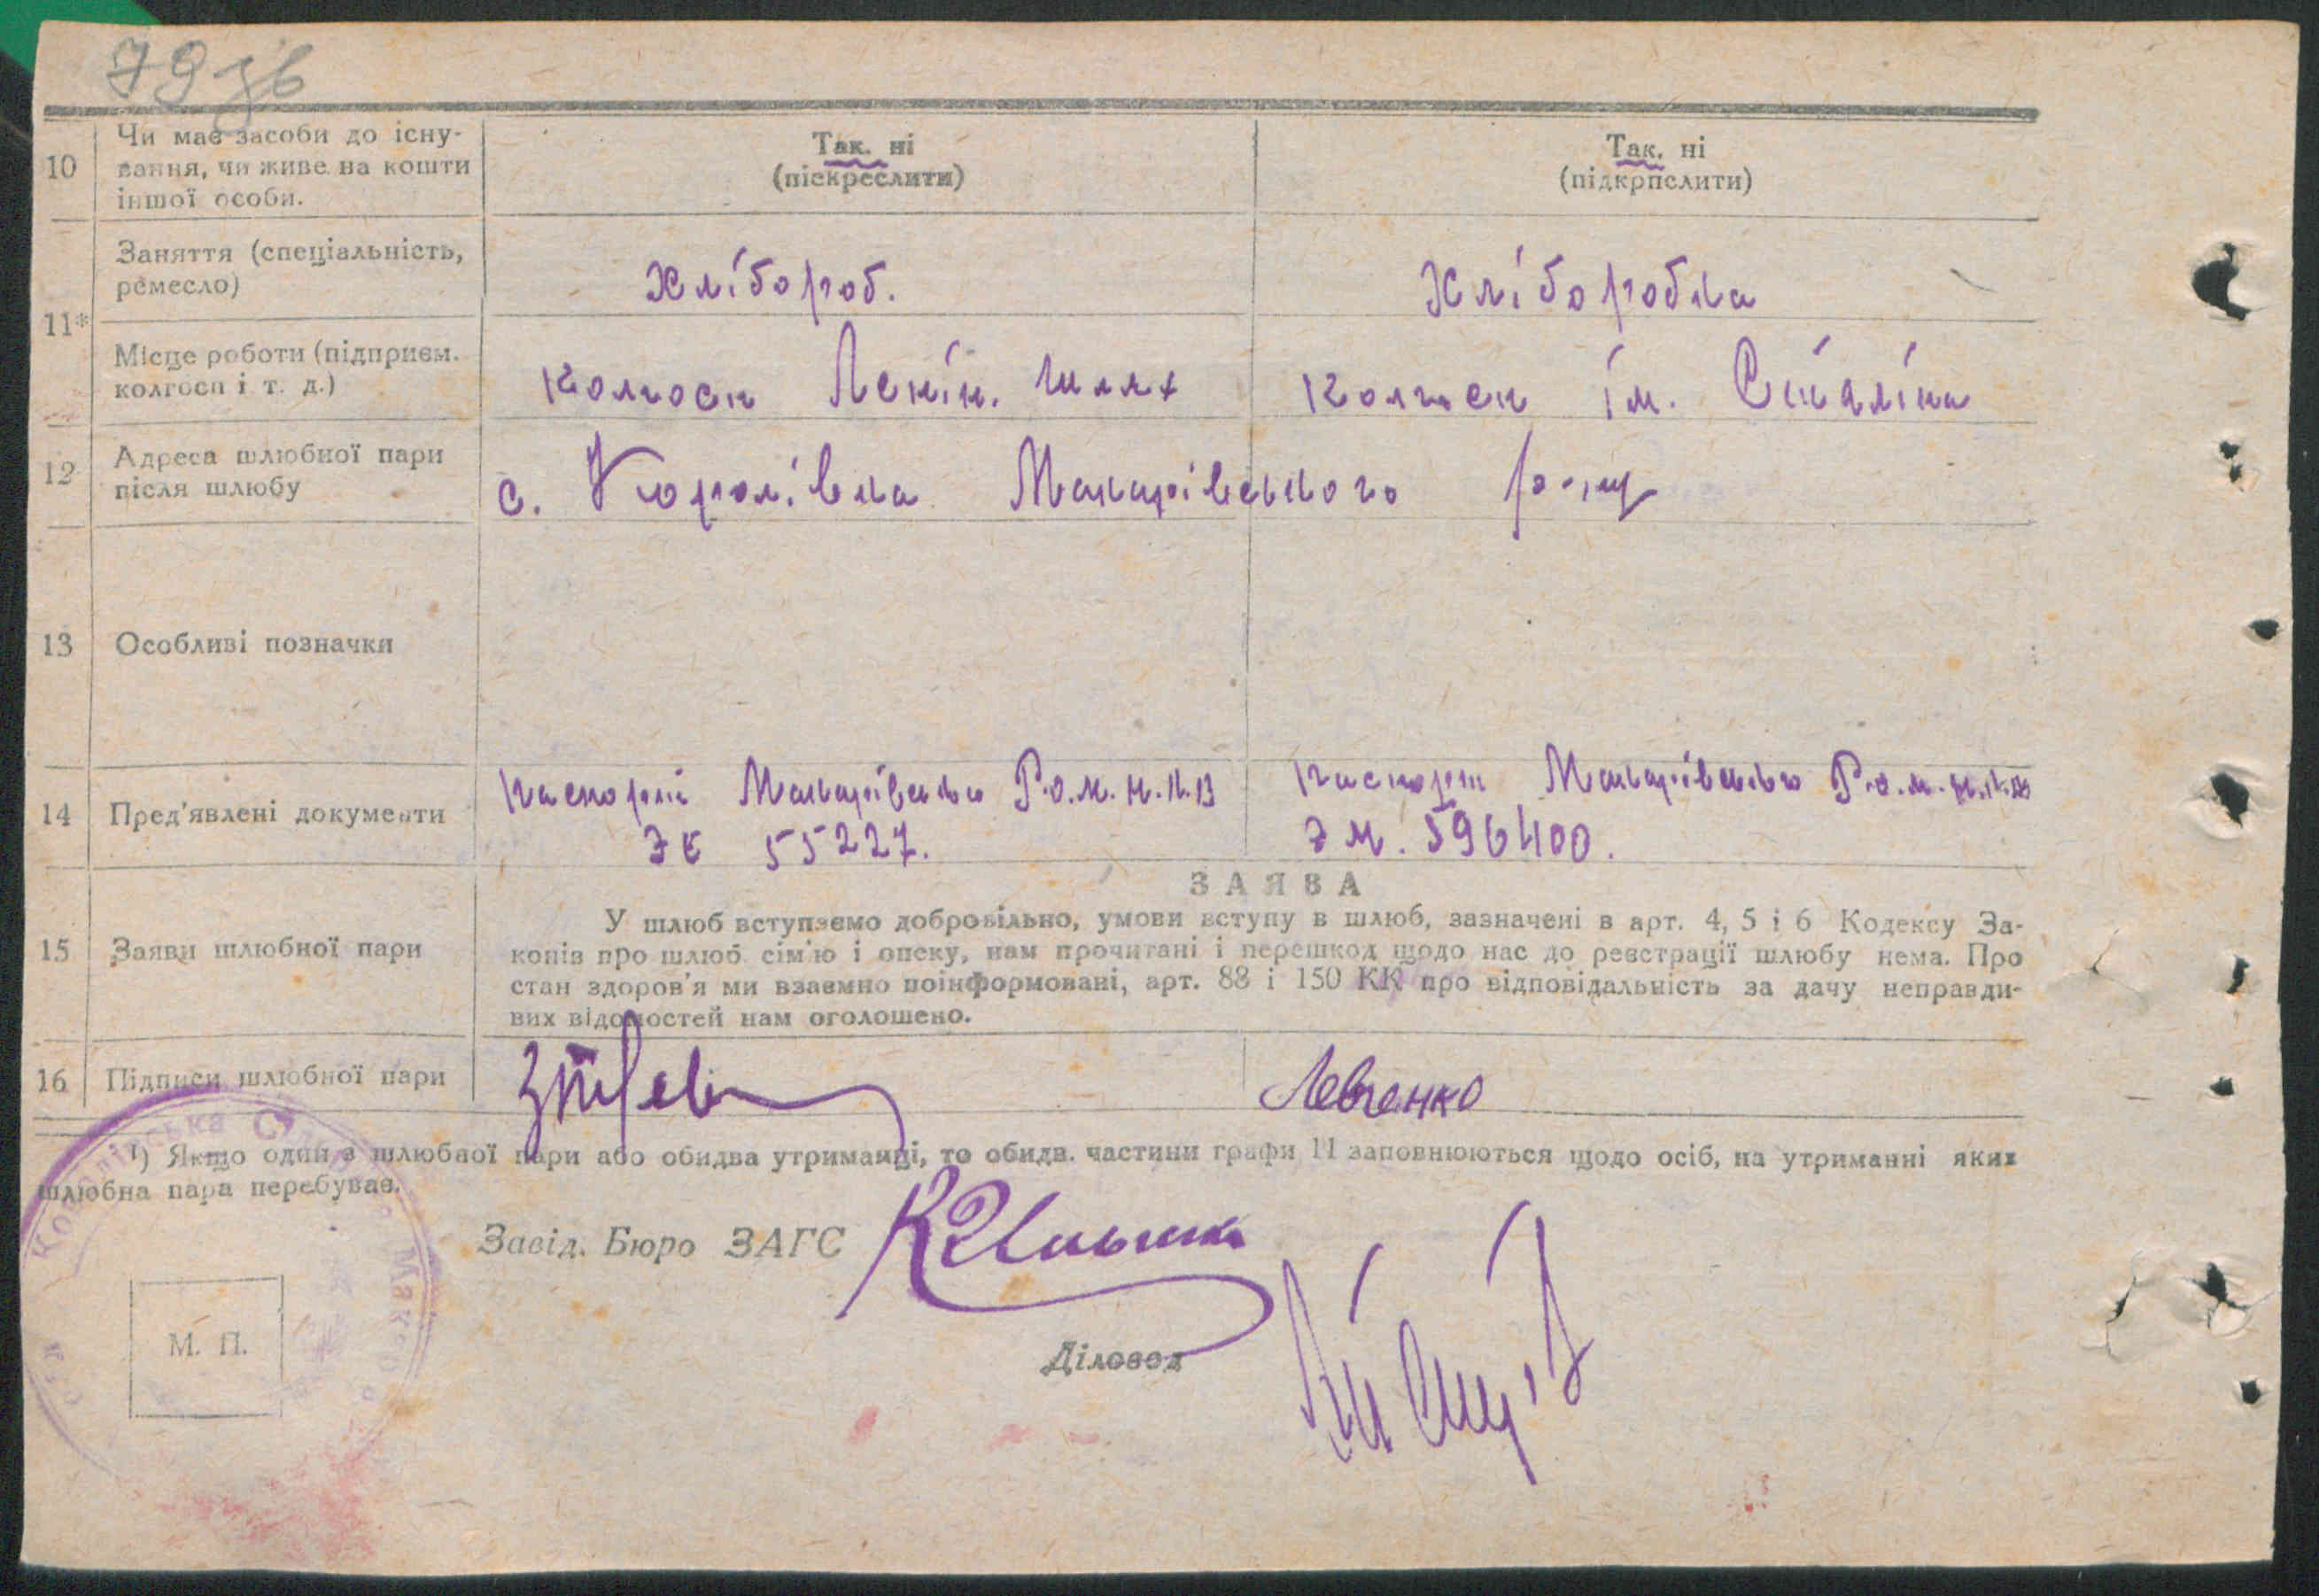 79 зв
10
Чи має засоби до існу-
вання, чи живе на кошти
іншої особи.
Так. ні
(піскреслити)
Так. ні
(підкрпслити)
11*
Заняття (спеціальність,
ремесло)
Хлібороб.
Хліборобка
Місце роботи (підприєм.
колгосп і т. д.)
Колгосп Ленін. шлях
Колгосп ім. Сталіна
12
Адреса шлюбної пари
після шлюбу
с. Королівка Макарівського р-ну
13
Особливі позначки
14
Пред'явлені документи
паспорт Макарівсько Р.О.М. Н.К.В
ЗЕ 55227.
паспорт Макарівсько Р.О.М. Н.К.В
596400.
15
Заяви шлюбної пари
ЗАЯВА
У шлюб вступаємо добровільно, умови вступу в шлюб, зазначені в арт. 4, 5 і 6 Кодексу За-
конів про шлюб сім'ю і опеку, нам прочитані і перешкод щодо нас до реєстрації шлюбу нема. Про
стан здоров'я ми взаємно поінформовані, арт. 88 і 150 КК про відповідальність за дачу неправди-
вих відомостей нам оголошено.
16
Підписи шлюбної пари
Левченко
¹) Якщо один з шлюбної пари або обидва утриманці, то обидв. частини графи 11 заповнюються щодо осіб, на утриманні яких
шлюбна пара перебуває.
Завід. Бюро ЗАГС
Діловод
М. П.